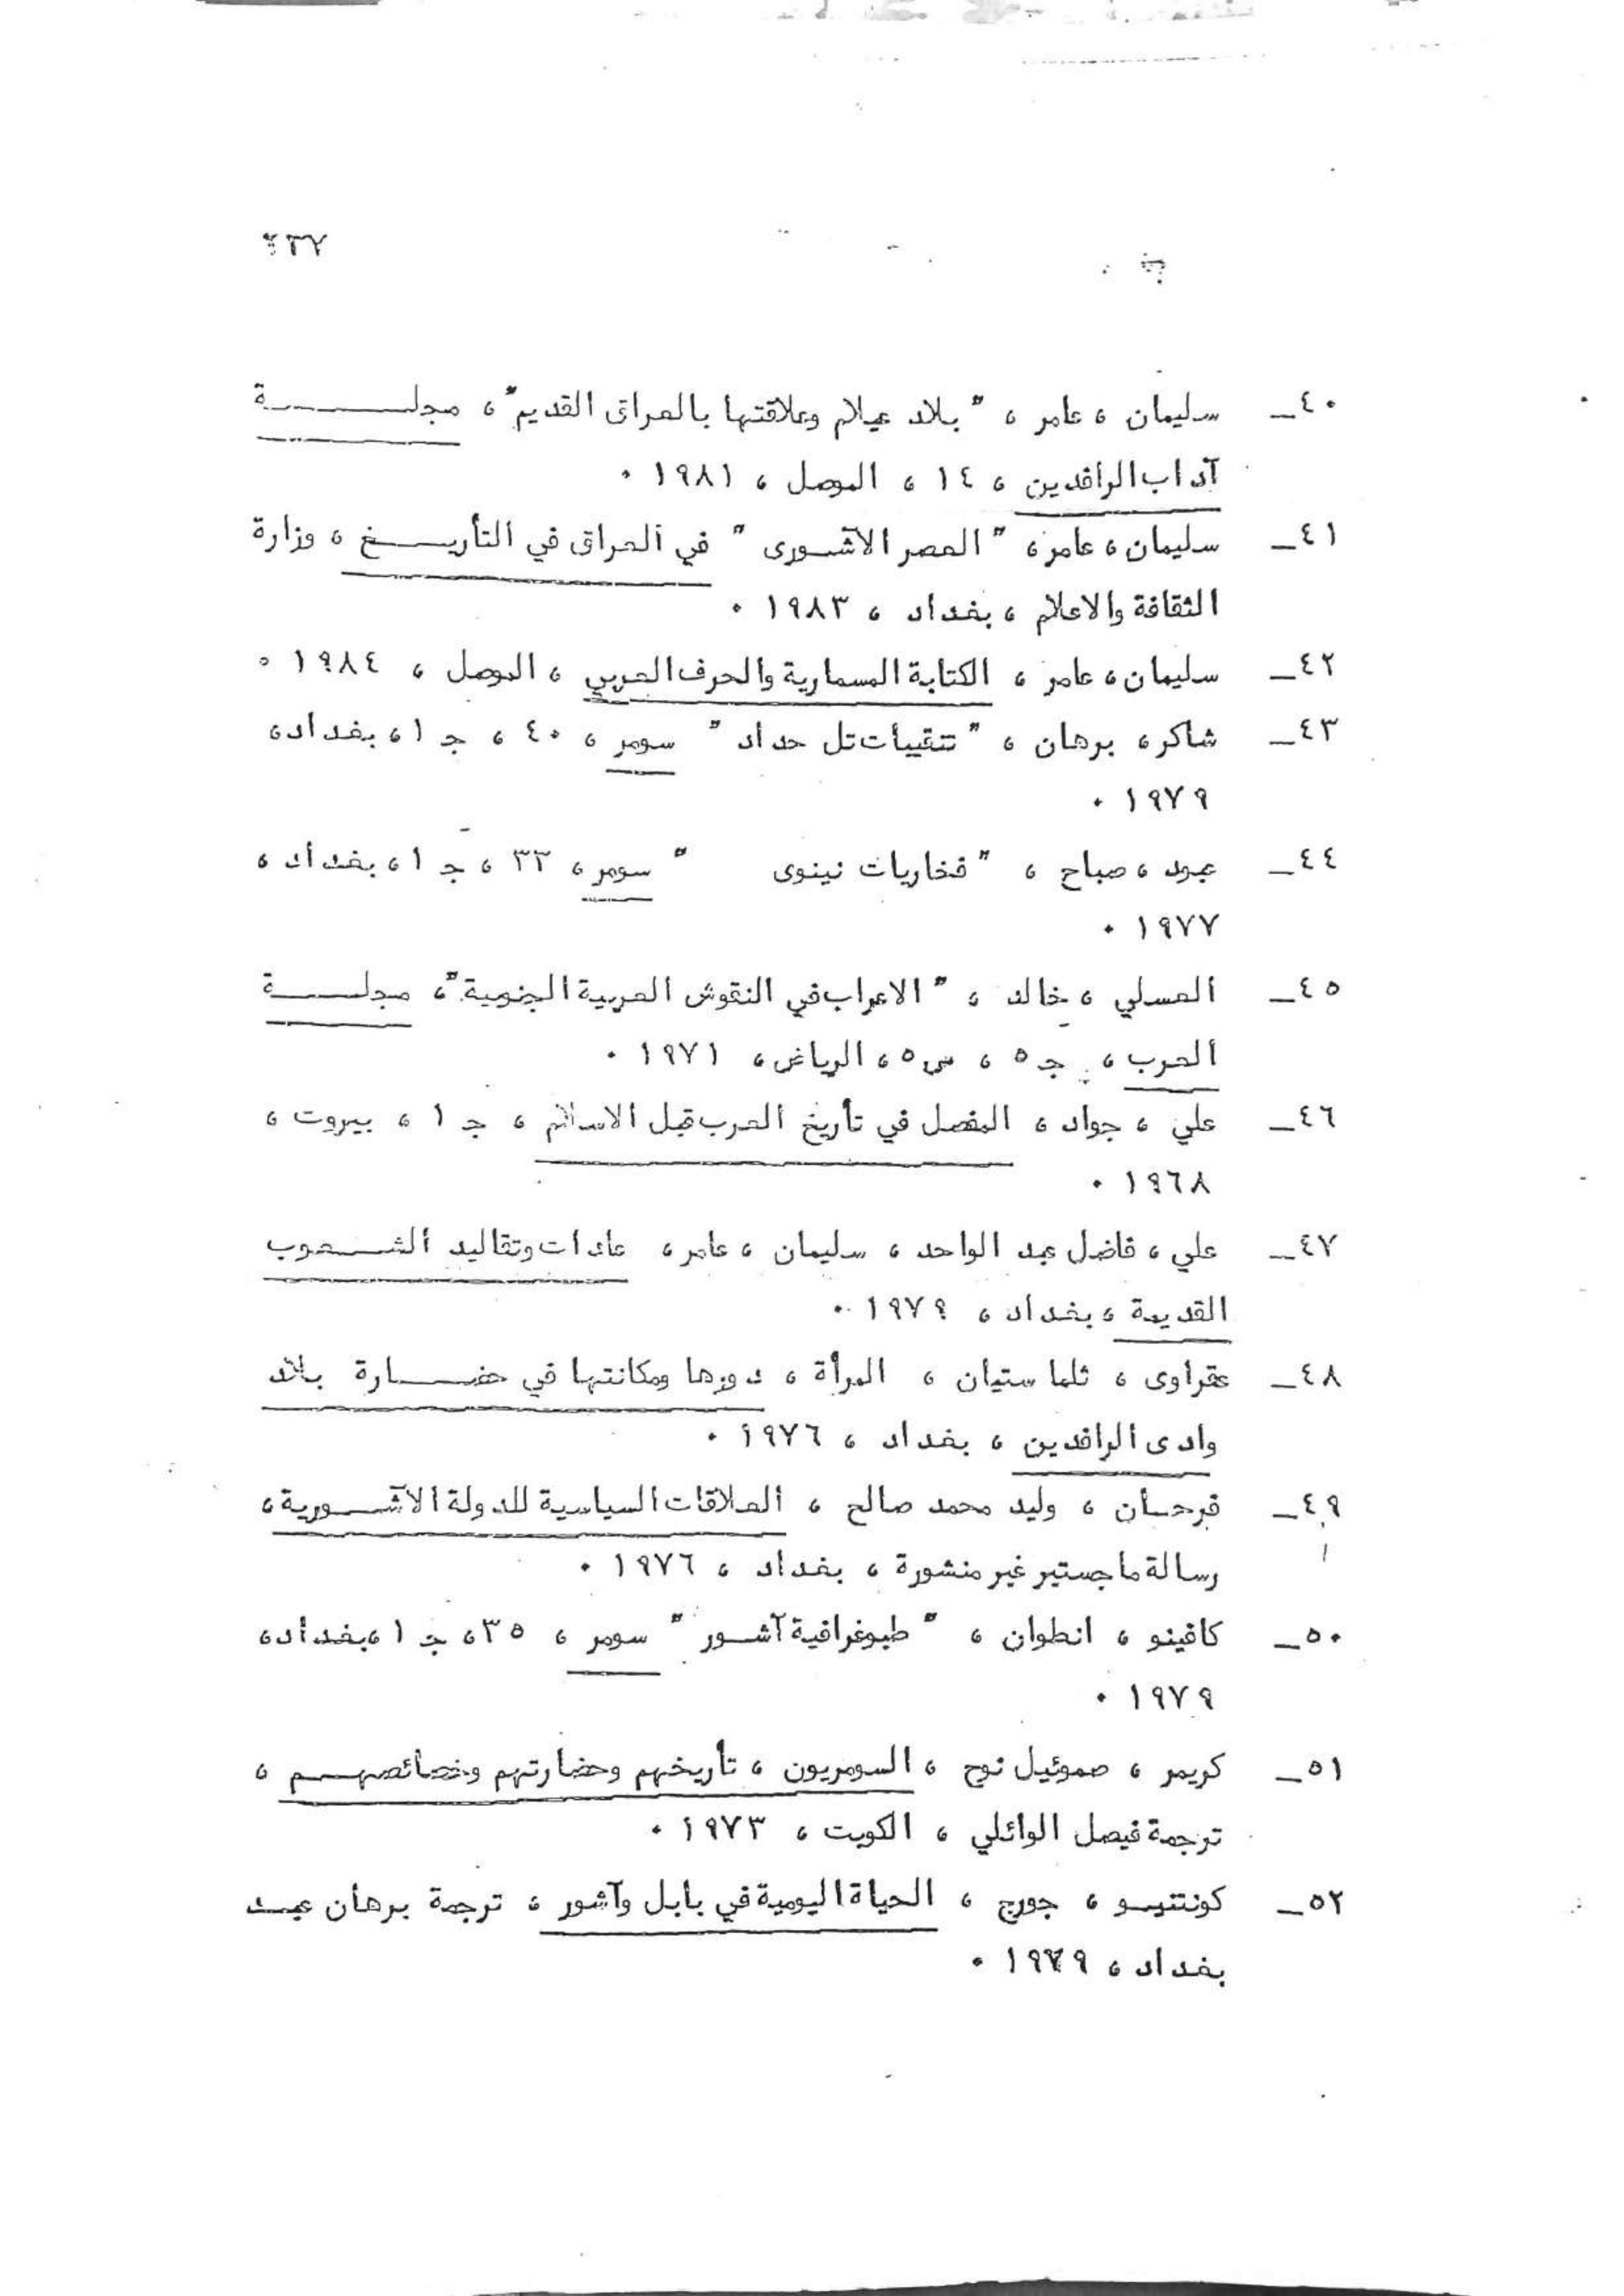 ٢٣٧
٤٠_ سليمان ، عامر ، " بلاد عيلام وعلاقتها بالعراق القديم" ، مجلـــــــة
آداب الرافدين ، ١٤ ، الموصل ، ١٩٨١ ٠
٤١_ سليمان ، عامر ، " العصر الآشـورى " في العراق في التأريـــخ ، وزارة
الثقافة والاعلام ، بغداد ، ١٩٨٣ ٠
٤٢_ سليمان ، عامر ، الكتابة المسمارية والحرف العربي ، الموصل ، ١٩٨٤ ٠
٤٣_ شاكر ، برهان ، " تنقيبات تل حداد " سومر ، ٤٠ ، جـ ١ ، بغداد ،
١٩٧٩ ٠
٤٤_ عبود ، صباح ، " فخاريات نينوى " سومر ، ٣٣ ، جـ ١ ، بغداد ،
١٩٧٧ ٠
٤٥_ العسلي ، خالد ، " الاعراب في النقوش العربية الجنوبية " ، مجلـــــة
العرب ، جـ ٥ ، س ٥ ، الرياض ، ١٩٧١ ٠
٤٦_ علي ، جواد ، المفصل في تأريخ العرب قبل الاسلام ، جـ ١ ، بيروت ،
١٩٦٨ ٠
٤٧_ علي ، فاضل عبد الواحد ، سليمان ، عامر ، عادات وتقاليد الشـــعوب
القديمة ، بغداد ، ١٩٧٩ ٠
٤٨_ عقراوى ، ثلماستيان ، المرأة ، دورها ومكانتها في حضـــارة بلاد
وادى الرافدين ، بغداد ، ١٩٧٦ ٠
٤٩_ فرحان ، وليد محمد صالح ، العلاقات السياسية للدولة الآشـــورية ،
رسالة ماجستير غير منشورة ، بغداد ، ١٩٧٦ ٠
٥٠_ كافينو ، انطوان ، " طبوغرافية آشـور " سومر ، ٣٥ ، جـ ١ ، بغداد ،
١٩٧٩ ٠
٥١_ كريمر ، صموئيل نوح ، السومريون ، تأريخهم وحضارتهم وخصائصهـــم ،
ترجمة فيصل الوائلي ، الكويت ، ١٩٧٣ ٠
٥٢_ كونتنيـو ، جورج ، الحياة اليومية في بابل وآشور ، ترجمة برهان عبـد
بغداد ، ١٩٧٩ ٠